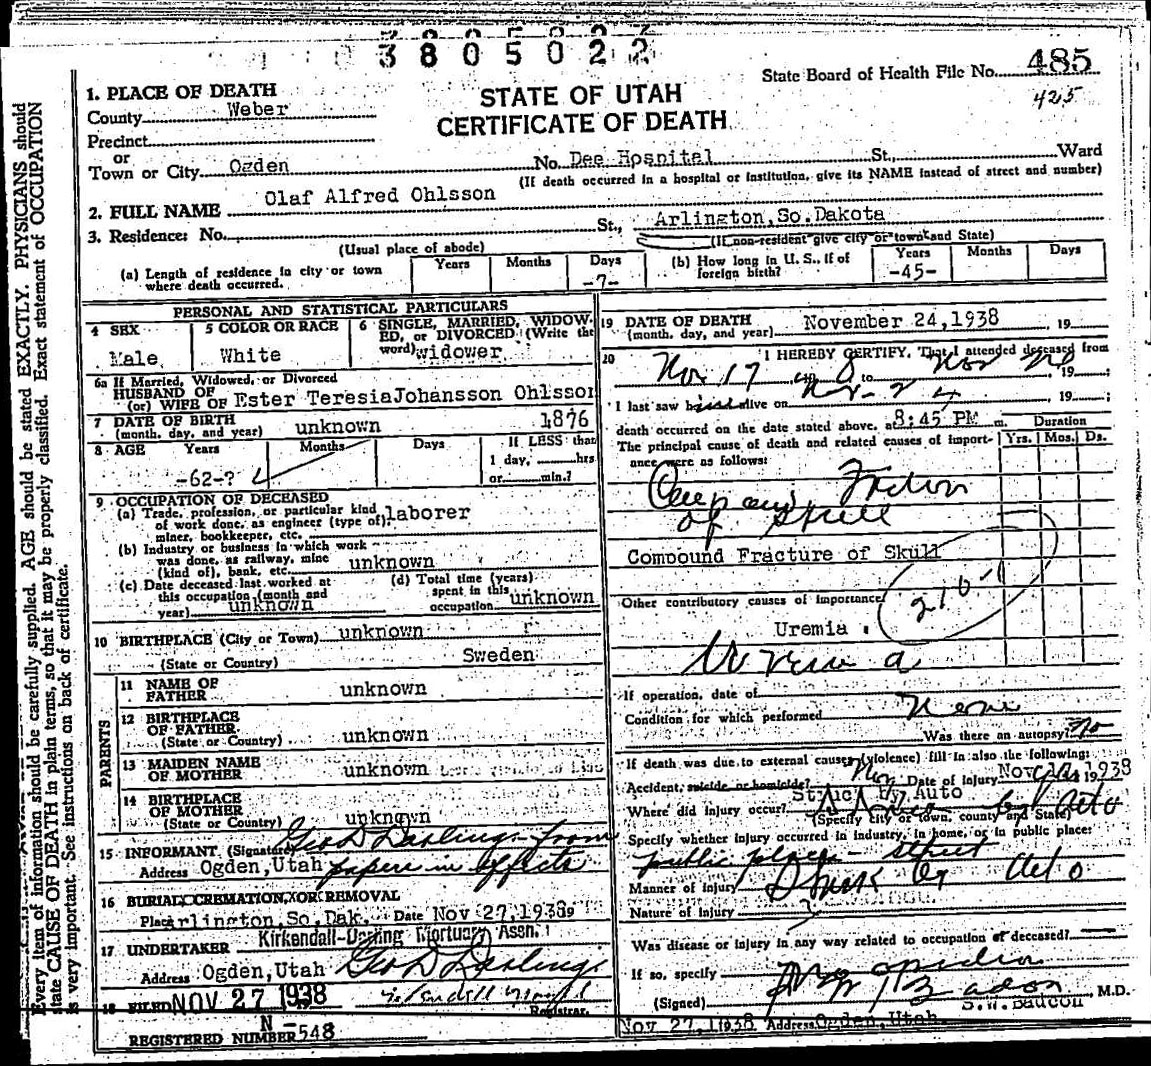 3805022
State Board of Health File No. 485
425
1. PLACE OF DEATH
STATE OF UTAH
CERTIFICATE OF DEATH
County Weber
Precinct
or
Town or City Ogden No. Dee Hospital St., Ward
(If death occurred in a hospital or institution, give its NAME instead of street and number)
2. FULL NAME Olaf Alfred Ohlsson
3. Residence: No. St., Arlington, So.Dakota
(Usual place of abode) (If non-resident give city or town and State)
(a) Length of residence in city or town where death occurred. Years Months Days -7-
(b) How long in U. S., if of foreign birth? Years -45- Months Days
PERSONAL AND STATISTICAL PARTICULARS
4 SEX Male
5 COLOR OR RACE White
6 SINGLE, MARRIED, WIDOWED, or DIVORCED (Write the word) widower
6a If Married, Widowed, or Divorced
HUSBAND OF
(or) WIFE OF Ester TeresiaJohansson Ohlsson
7 DATE OF BIRTH
(month, day, and year) unknown 1876
8 AGE Years Months Days If LESS than
1 day, hrs
or min.?
-62-?
9 OCCUPATION OF DECEASED
(a) Trade, profession, or particular kind
of work done, as engineer (type of), laborer
miner, bookkeeper, etc.
(b) Industry or business in which work
was done, as railway, mine unknown
(kind of), bank, etc.
(c) Date deceased last worked at
this occupation (month and
year) unknown
(d) Total time (years)
spent in this
occupation unknown
10 BIRTHPLACE (City or Town) unknown
(State or Country) Sweden
PARENTS
11 NAME OF
FATHER unknown
12 BIRTHPLACE
OF FATHER
(State or Country) unknown
13 MAIDEN NAME
OF MOTHER unknown
14 BIRTHPLACE
OF MOTHER
(State or Country) unknown
15 INFORMANT (Signature) Geo D Darling - from
Address Ogden,Utah papers in effects
16 BURIAL, CREMATION, OR REMOVAL
Place Arlington So.Dak. Date Nov 27,1938
17 UNDERTAKER Kirkendall-Darling Mortuary Assn.
Address Ogden,Utah Geo D Darling
18 FILED NOV 27 1938
Registrar.
N-
REGISTERED NUMBER 548
19 DATE OF DEATH
(month, day, and year) November 24,1938 19
20 I HEREBY CERTIFY, That I attended deceased from
Nov 17 to Nov 19
I last saw him alive on Nov-24 19
death occurred on the date stated above, at 8:45 PM m.
Duration
The principal cause of death and related causes of importance were as follows: Yrs. Mos. Ds.
of Skull
Compound Fracture of Skull
210
Other contributory causes of importance:
Uremia
Uremia
If operation, date of
Condition for which performed None
Was there an autopsy? No
If death was due to external causes (violence) fill in also the following:
Accident, suicide or homicide? Date of injury Nov 1938
Where did injury occur? Struck by Auto
(Specify city or town, county and State)
Specify whether injury occurred in industry, in home, or in public place:
public place - street
Manner of injury Struck by Auto
Nature of injury
Was disease or injury in any way related to occupation of deceased?
If so, specify
(Signed) M.D.
Nov 27, 1938 Address Ogden,Utah
Every item of information should be carefully supplied. AGE should be stated EXACTLY. PHYSICIANS should
state CAUSE OF DEATH in plain terms, so that it may be properly classified. Exact statement of OCCUPATION
is very important. See instructions on back of certificate.